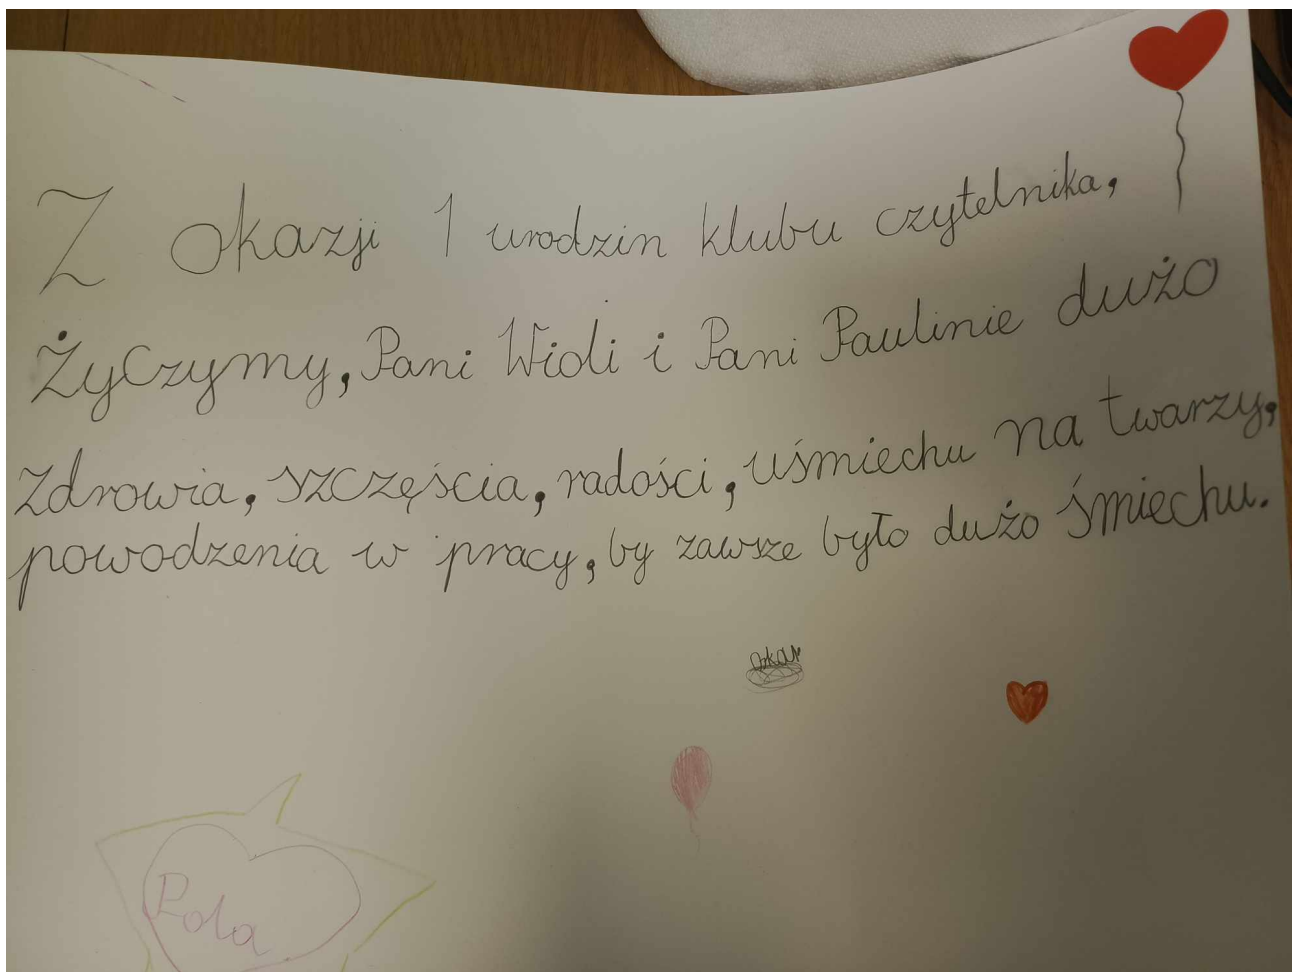 Z okazji 1 urodzin klubu czytelnika,
Życzymy, Pani Wioli i Pani Paulinie dużo
zdrowia, szczęścia, radości, uśmiechu na twarzy,
powodzenia w pracy, by zawsze było dużo śmiechu.
Pola